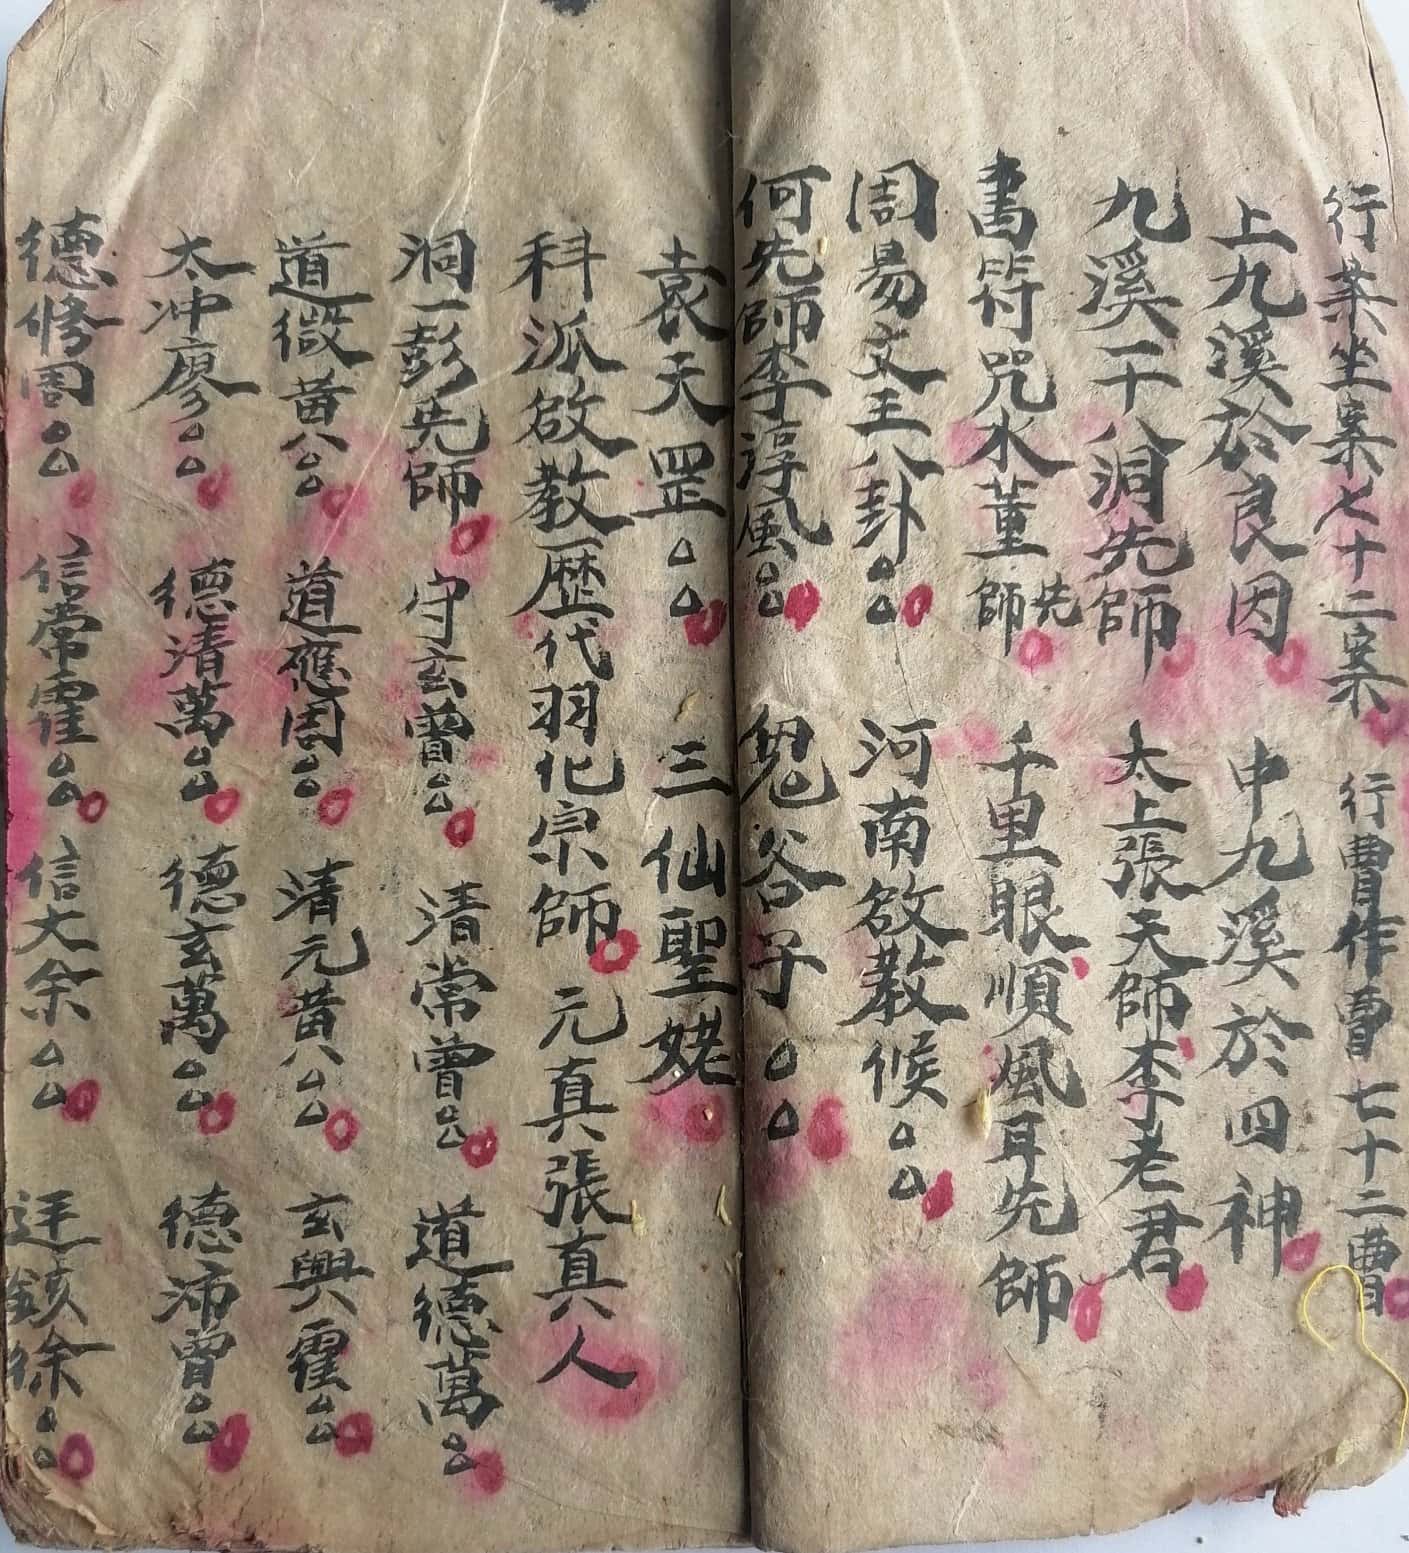 行案坐案七十二案 行曹作曹七十二曹
上九溪於良因 中九溪於四神
九溪一十八洞先師 太上張天師李老君
書符咒水董先師 千里眼順風耳先師
周易文王八卦△△ 河南啟教候△△
何先師李淳風△△ 鬼谷子△△
袁天罡△△ 三仙聖姥
科派啟教歷代羽化宗師 元真張真人
洞一彭先師 守玄曾△△ 清常曾△△ 道德萬△△
道微黃公△△ 道應周△△ 清元黃八△△ 玄興霍△△
太冲廖△△ 德清萬△△ 德玄萬△△ 德沛曾△△
德修周△△ 信常霍△△ 信文余△△ 徐△△